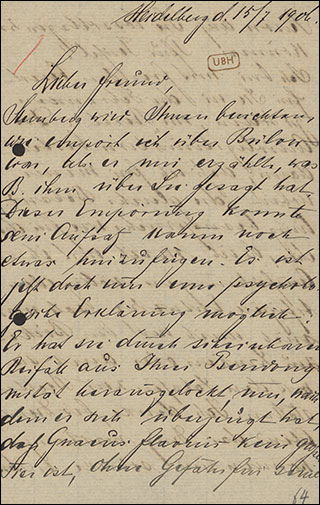 Heidelberg d. 15/7 1906.
UBH
Lieber Freund,
Sternberg wird Ihnen berichtet haben,
wie empört ich über Bülow
war, als er mir erzählte, was
B. ihm über Sie gesagt hat.
Dieser Empörung konnte
sein Aufsatz kaum noch
etwas hinzufügen. Es ist
jetzt doch nur eine psycholo-
gische Erklärung möglich:
Er hat Sie durch scheinbaren
Beifall aus Ihrer Pseudony-
mität herausgelockt und, nach
dem er sich überzeugt hat,
daß Gnaeus Flavius kein
ist, ohne Gefahr für seine
64